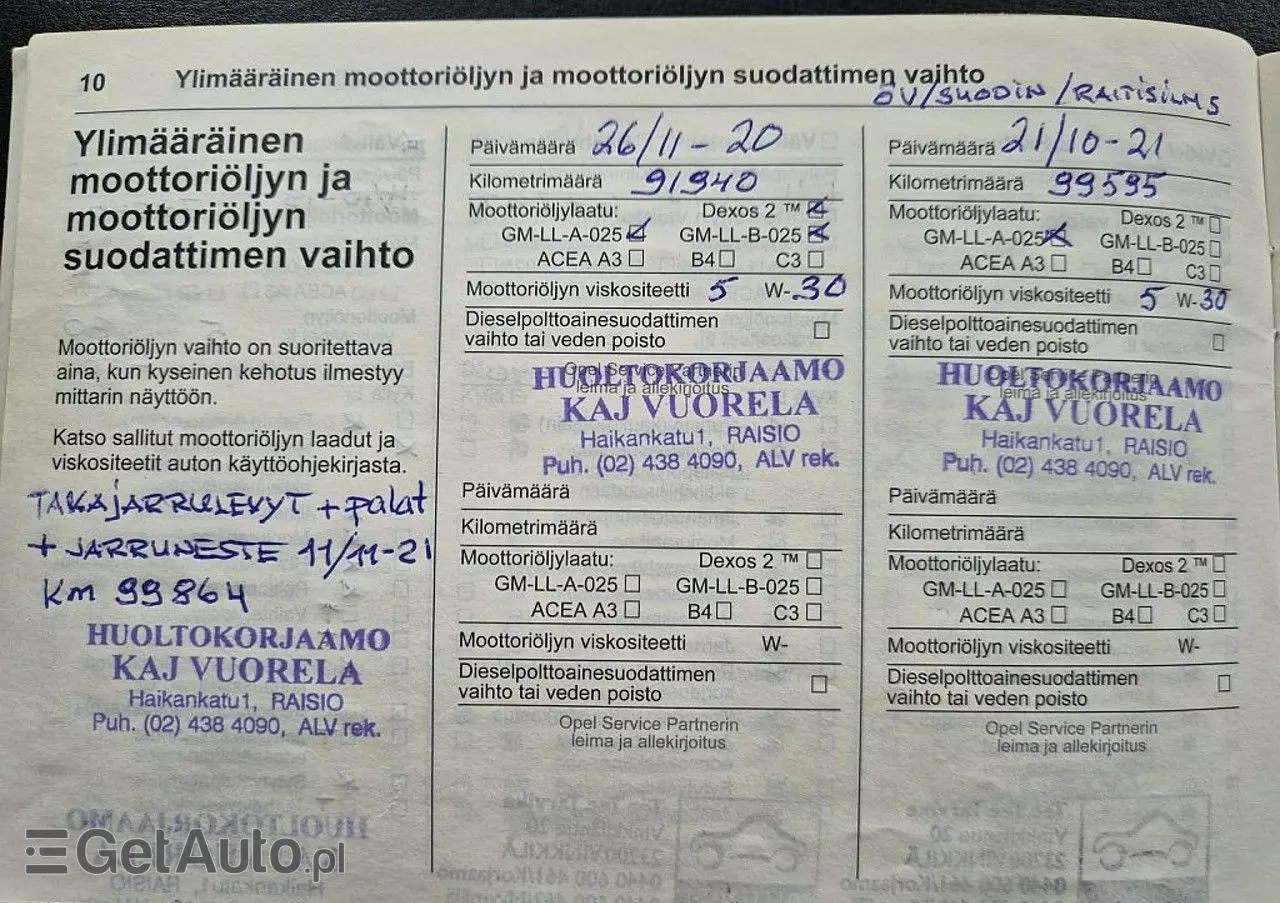 10 Ylimääräinen moottoriöljyn ja moottoriöljyn suodattimen vaihto
ÖV/SUODIN/RAITISILMS
Ylimääräinen
moottoriöljyn ja
moottoriöljyn
suodattimen vaihto
Moottoriöljyn vaihto on suoritettava
aina, kun kyseinen kehotus ilmestyy
mittarin näyttöön.
Katso sallitut moottoriöljyn laadut ja
viskositeetit auton käyttöohjekirjasta.
TAKAJARRULEVYT + palat
+ JARRUNESTE 11/11-21
Km 99864
HUOLTOKORJAAMO
KAJ VUORELA
Haikankatu1, RAISIO
Puh. (02) 438 4090, ALV rek.
Päivämäärä 26/11-20
Kilometrimäärä 91940
Moottoriöljylaatu: Dexos 2 ™
GM-LL-A-025 GM-LL-B-025
ACEA A3 B4 C3
Moottoriöljyn viskositeetti 5 W-30
Dieselpolttoainesuodattimen
vaihto tai veden poisto
Opel Service Partnerin
leima ja allekirjoitus
HUOLTOKORJAAMO
KAJ VUORELA
Haikankatu1, RAISIO
Puh. (02) 438 4090, ALV rek.
Päivämäärä
Kilometrimäärä
Moottoriöljylaatu: Dexos 2 ™
GM-LL-A-025 GM-LL-B-025
ACEA A3 B4 C3
Moottoriöljyn viskositeetti W-
Dieselpolttoainesuodattimen
vaihto tai veden poisto
Opel Service Partnerin
leima ja allekirjoitus
Päivämäärä 21/10-21
Kilometrimäärä 99595
Moottoriöljylaatu: Dexos 2 ™
GM-LL-A-025 GM-LL-B-025
ACEA A3 B4 C3
Moottoriöljyn viskositeetti 5 W-30
Dieselpolttoainesuodattimen
vaihto tai veden poisto
leima ja allekirjoitus
HUOLTOKORJAAMO
KAJ VUORELA
Haikankatu1, RAISIO
Puh. (02) 438 4090, ALV rek.
Päivämäärä
Kilometrimäärä
Moottoriöljylaatu: Dexos 2 ™
GM-LL-A-025 GM-LL-B-025
ACEA A3 B4 C3
Moottoriöljyn viskositeetti W-
Dieselpolttoainesuodattimen
vaihto tai veden poisto
Opel Service Partnerin
leima ja allekirjoitus
GetAuto.pl